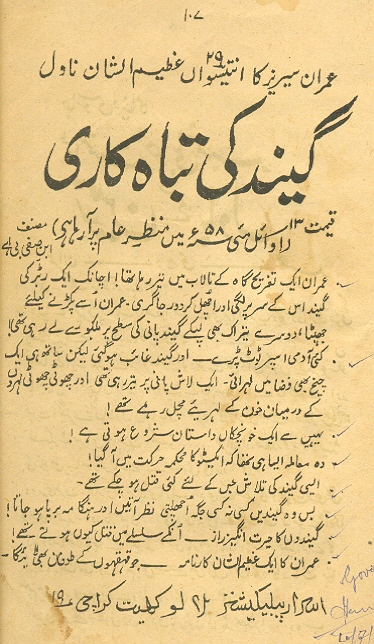 ۱۰۷
عمران سیریز کا ۲۹ انتیسواں عظیم الشان ناول
گیند کی تباہ کاری
قیمت ۱۳ (اوائل مئی ۵۸ء میں منظرِ عام پر آ رہا ہی) مصنف ابن صفی بی اے
عمران ایک تفریح گاہ کے تالاب میں تیر رہا تھا! اچانک ایک ربڑ کی
گیند اس کے سر پر لگی اور اچھل کر دور جا گری۔ عمران اُسے پکڑنے کیلئے
جھپٹا، دوسرے تیراک بھی لپکے گیند پانی کی سطح پر ہلکورے لے رہی تھی!
کئی آدمی اسپر ٹوٹ پڑے۔ اور گیند غائب ہوگئی لیکن ساتھ ہی ایک
چیخ بھی فضا میں لہرائی۔ ایک لاش پانی پر تیر رہی تھی اور چھوٹی چھوٹی لہروں
کے درمیان خون کے لہریئے مچل رہے تھے!
یہیں سے ایک خونچکاں داستان شروع ہوتی ہے!
وہ معاملہ ایسا ہی تھا کہ ایکسٹو کا محکمہ حرکت میں آگیا!
ایسی گیند کی تلاش جس کے لئے کئی قتل ہو چکے تھے۔
بس وہ گیندیں کسی نہ کسی جگہ اچھلتی نظر آتیں! اور ہنگامہ برپا ہو جاتا!
گیندوں کا حیرت انگیز راز۔ اُنکے سلسلے میں قتل کیوں ہوتے تھے!
عمران کا ایک عظیم الشان کارنامہ۔ جو قہقہوں کے طوفان بھی لائیگا۔
اسرار پبلیکیشنز لوکھیت کراچی ۱۹